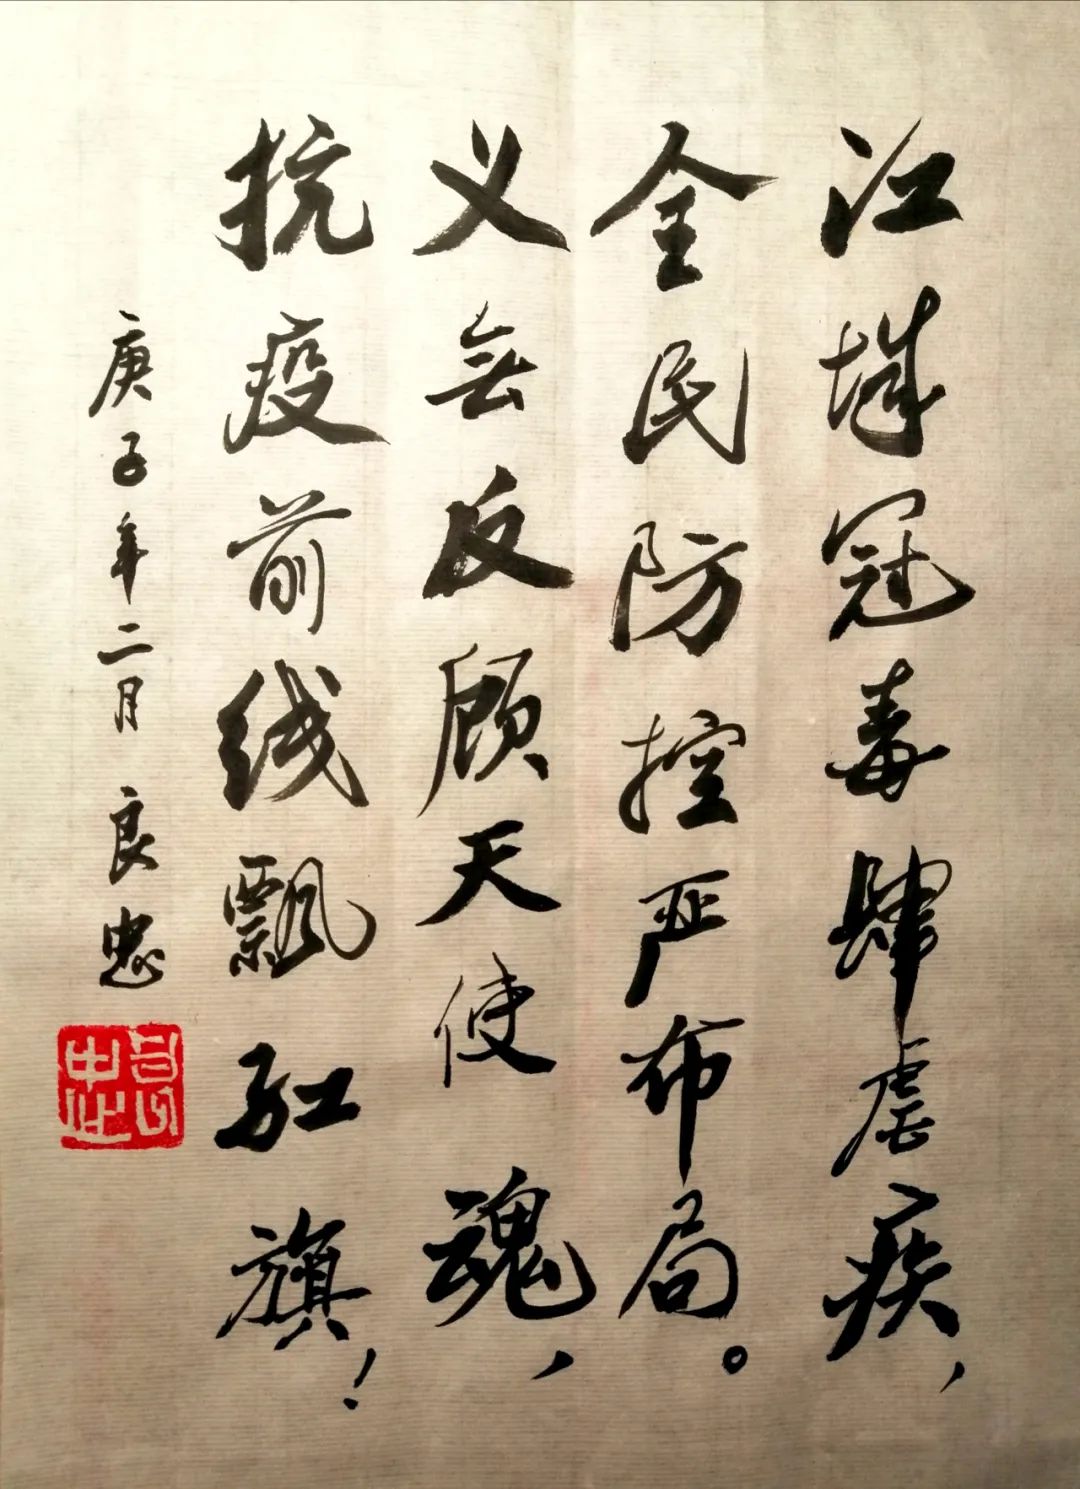 江城冠毒肆虐疾，
全民防控严布局。
义无反顾天使魂，
抗疫前线飘红旗！
庚子年二月良忠
良忠